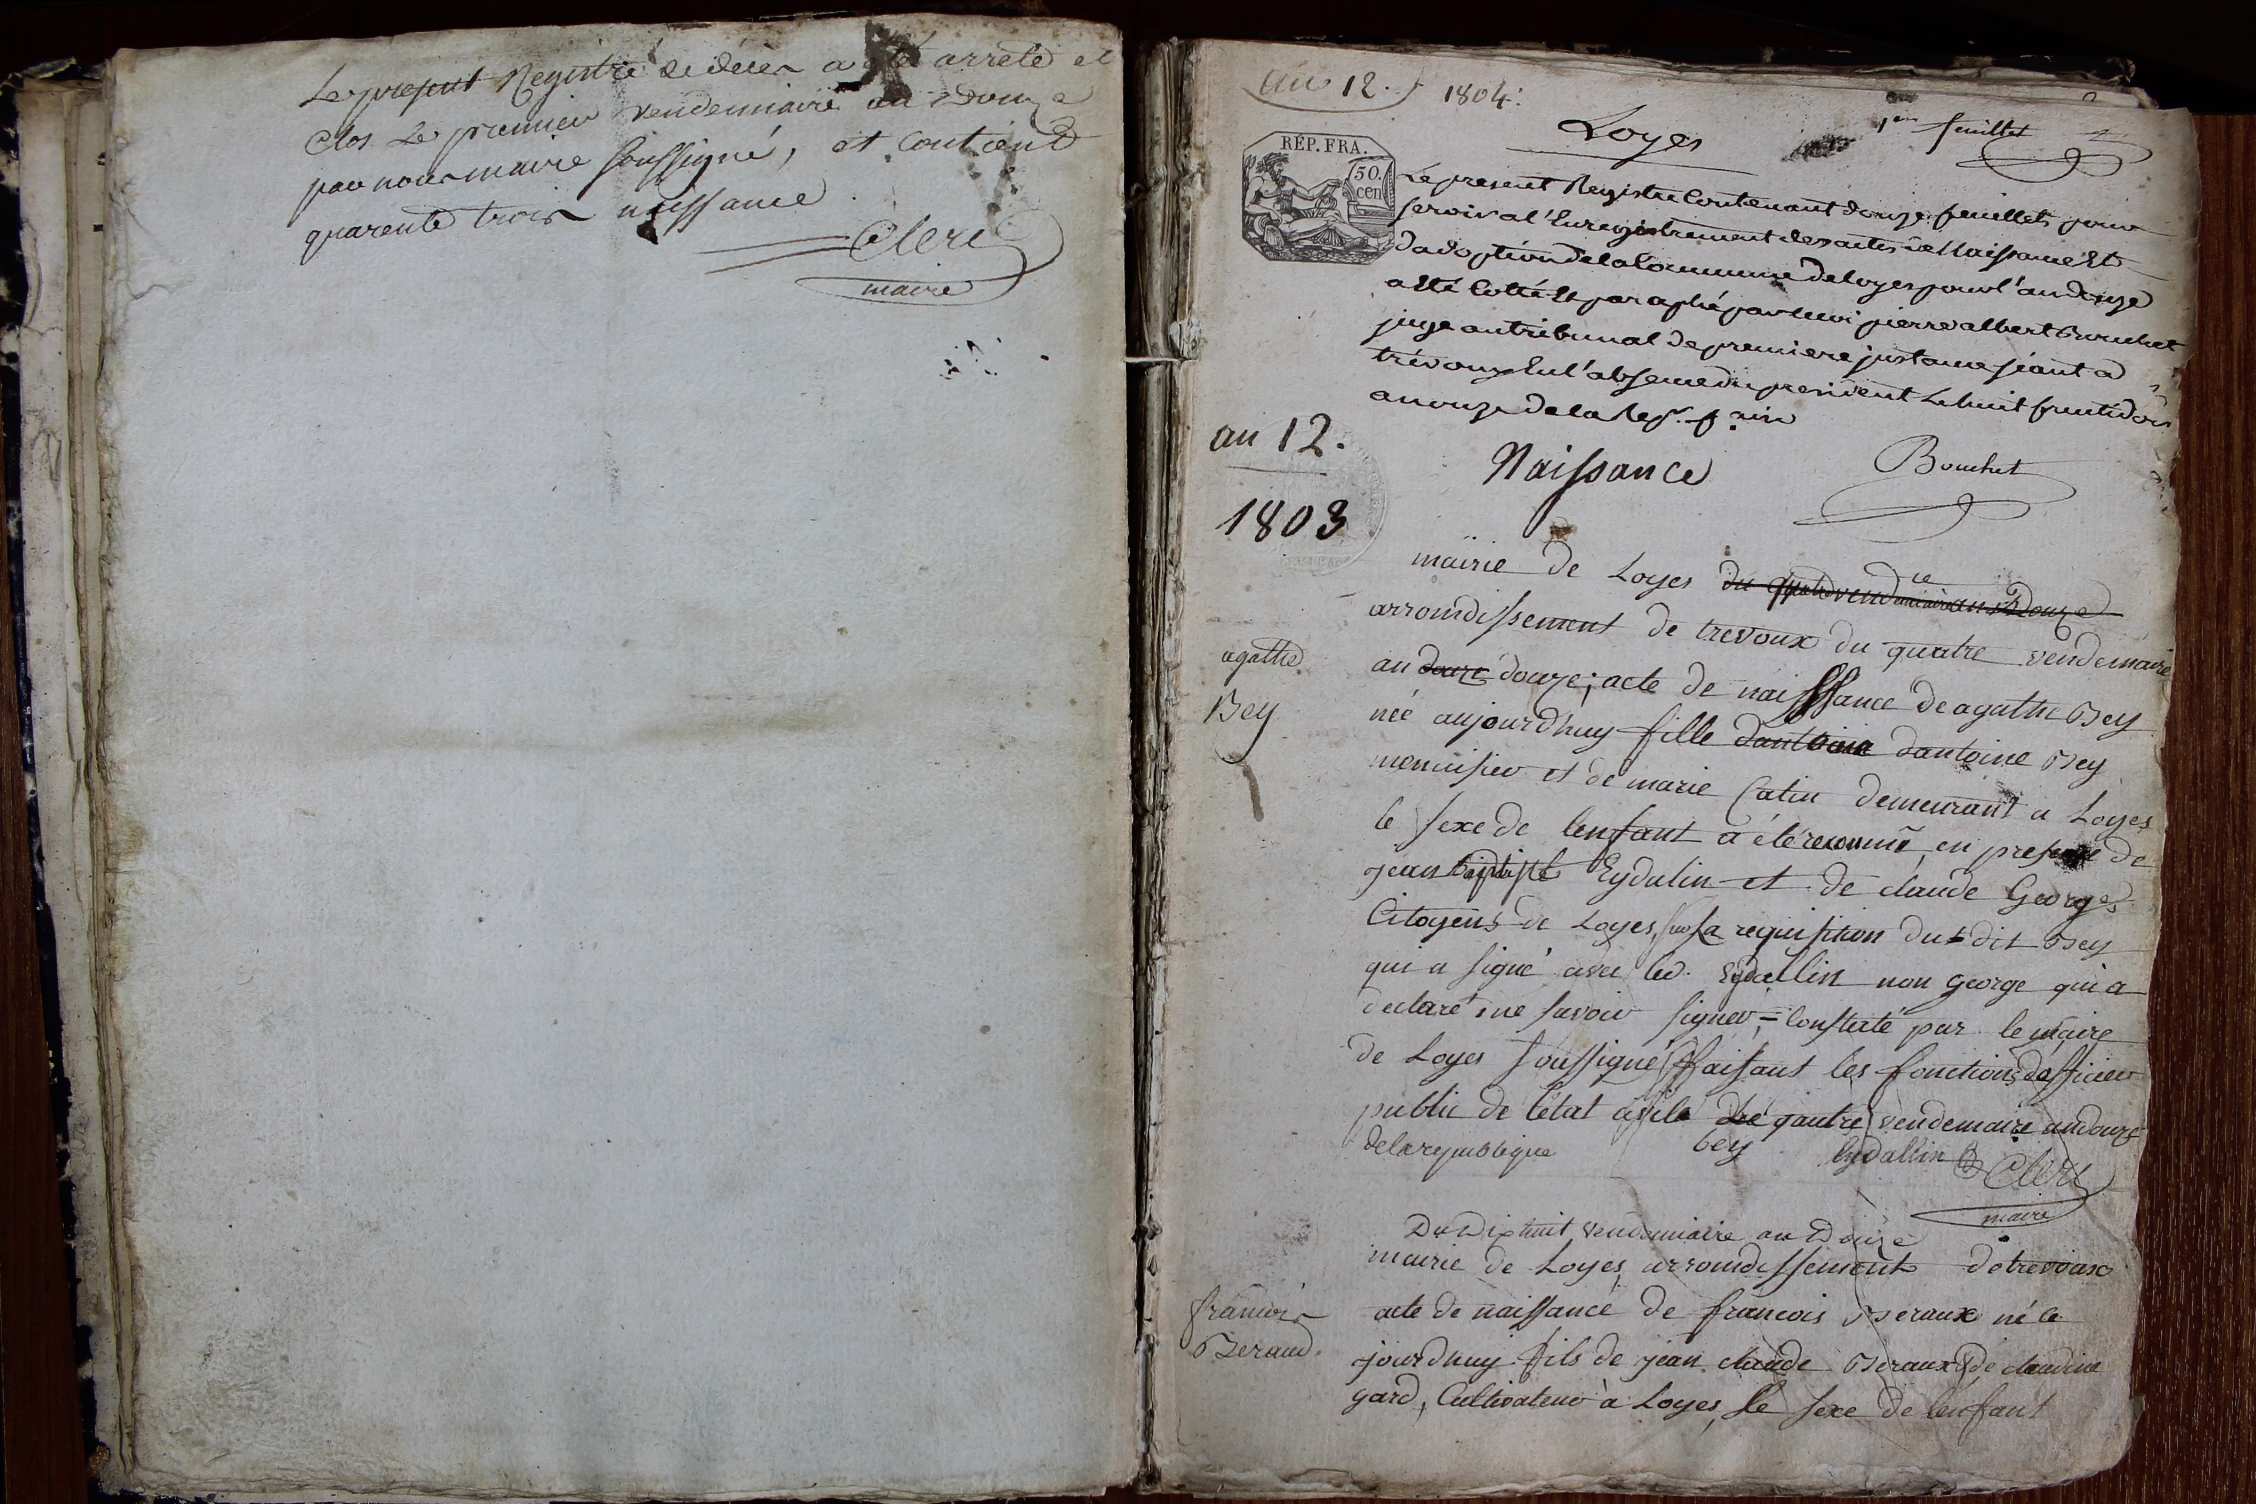 Le present Registre de décès a été arreté et
Clos le premier vendemiaire an Douze
par nous maire soussigné, et Contient
quarente trois naissance
Clerc
maire
An 12.
1804.
1er feuillet
Loyes
RÉP. FRA.
50.
cen
Le present Registre Contenant douze feuillets pour
servir a l'Enregistrement des actes de Naissance Et
dadoption de la Commune de loyes pour l'an douze
a Eté Cotté Et paraphé par moi pierre albert Bouchet
juge au tribunal de premiere justance séant a
trévoux En l'absence du president Le huit fructidor
an onze de la Rep.
Bouchet
an 12.
1803
Naissance
mairie de Loyes du quatre vendemiaire an Douze
arroindissement de trevoux du quatre vendemaire
agathe
Bey
an douze douze; acte de naissance de agathe Bey
née aujourdhuy fille dantoine dantoine Bey
menuisier et de marie Catin demeurant a Loyes
le sexe de lenfant a été reconnu, en presence de
jean baptiste Eydalin et de claude George,
Citoyens de Loyes, sur la requisition du dit Bey
qui a signé avec led. Eydallin non george qui a
declaré ne savoir signer, = Constaté par le maire
de Loyes soussigné faisant les fonctions dofficier
public de l'état civile le qautre vendemaire an douze
de la republique
bey
Eydallin
Clerc
maire
Du Dix huit vendemiaire an Douze
mairie de Loyes, arroindissement de trevoux
francois
Beraud.
acte de naissance de francois Beraux né ce
jourdhuy fils de jean claude Beraux & de claudine
gard, Cultivateur à Loyes, le sexe de l'enfant